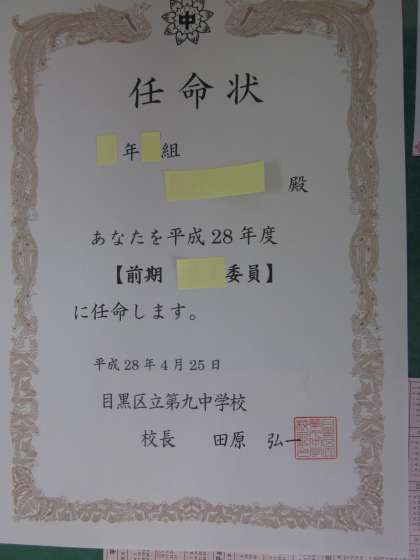 中
任命状
年 組
殿
あなたを平成28年度
【前期 委員】
に任命します。
平成28年4月25日
目黒区立第九中学校
校長 田原 弘一